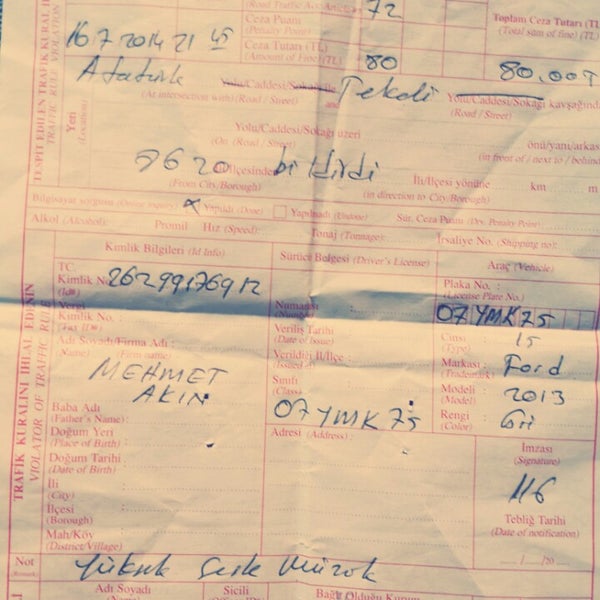 (Road Traffic Act Article) 72
Ceza Puanı
(Penalty Point)
Toplam Ceza Tutarı (TL)
(Total sum of fine) (TL)
16.7.2014 21 45
Ceza Tutarı (TL)
(Amount of Fine) (TL)
80
80.00TL
TESPİT EDİLEN TRAFİK KURALI
TRAFFIC RULE VIOLATION
Yeri
(Location)
Atatürk Yolu/Caddesi/Sokağı ile Tekeli Yolu/Caddesi/Sokağı kavşağında
(At intersection with) (Road / Street) and (Road / Street)
Yolu/Caddesi/Sokağı üzeri önü/yanı/arkası
(On) (Road / Street) (in front of / next to / behind
9620 İl/İlçesinden bildirdi İli/İlçesi yönüne km m
(From City/Borough) (in direction to City/Borough)
Bilgisayar sorgusu (Online inquiry) Yapıldı (Done) Yapılmadı (Undone) Sür. Ceza Puanı (Drv. Penalty Point)
Alkol (Alcohol): Promil Hız (Speed): Tonaj (Tonnage): İrsaliye No. (Shipping no):
TRAFİK KURALINI İHLAL EDENİN
VIOLATOR OF TRAFFIC RULE
Kimlik Bilgileri (Id Info)
Sürücü Belgesi (Driver's License)
Araç (Vehicle)
TC.
Kimlik No
(Id#)
26299176912
Vergi
Kimlik No. :
(Tax ID#)
Adı Soyadı/Firma Adı :
(Name) (Firm name)
MEHMET
AKIN
Baba Adı
(Father's Name) :
Doğum Yeri
(Place of Birth) :
Doğum Tarihi
(Date of Birth) :
İli
(City)
İlçesi
(Borough)
Mah/Köy
(District/Village)
Numarası
(Number)
Veriliş Tarihi
(Date of Issue)
Verildiği İl/İlçe
(Issued at)
Sınıfı
(Class)
07 YMK 75
Adresi (Address) :
Plaka No. :
(License Plate No.)
07 YMK 75
Cinsi
(Type)
15
Markası
(Trademark)
Ford
Modeli
(Model)
2013
Rengi
(Color)
Gri
İmzası
(Signature)
Tebliğ Tarihi
(Date of notification)
..../..../20....
Not
(Remark)
Yüksek Sesle Müzik
Adı Soyadı
Sicili
Bağlı Olduğu Kurum